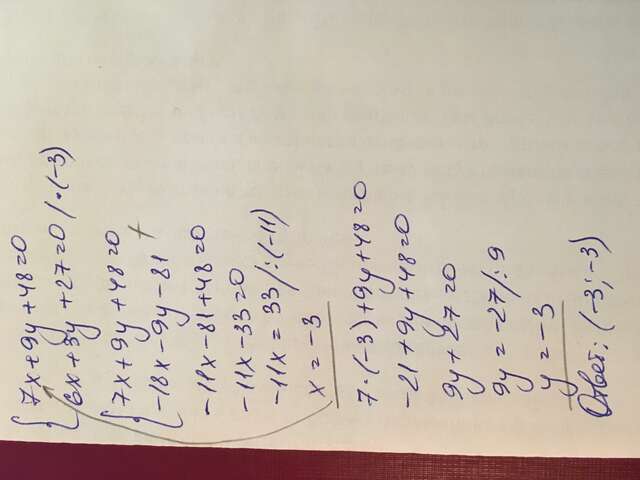 7x+9y+48=0
6x+3y+27=0 /·(-3)
7x+9y+48=0
-18x-9y-81 +
-11x-81+48=0
-11x-33=0
-11x=33 /:(-11)
x=-3
7·(-3)+9y+48=0
-21+9y+48=0
9y+27=0
9y=-27/:9
y=-3
Ответ: (-3;-3)